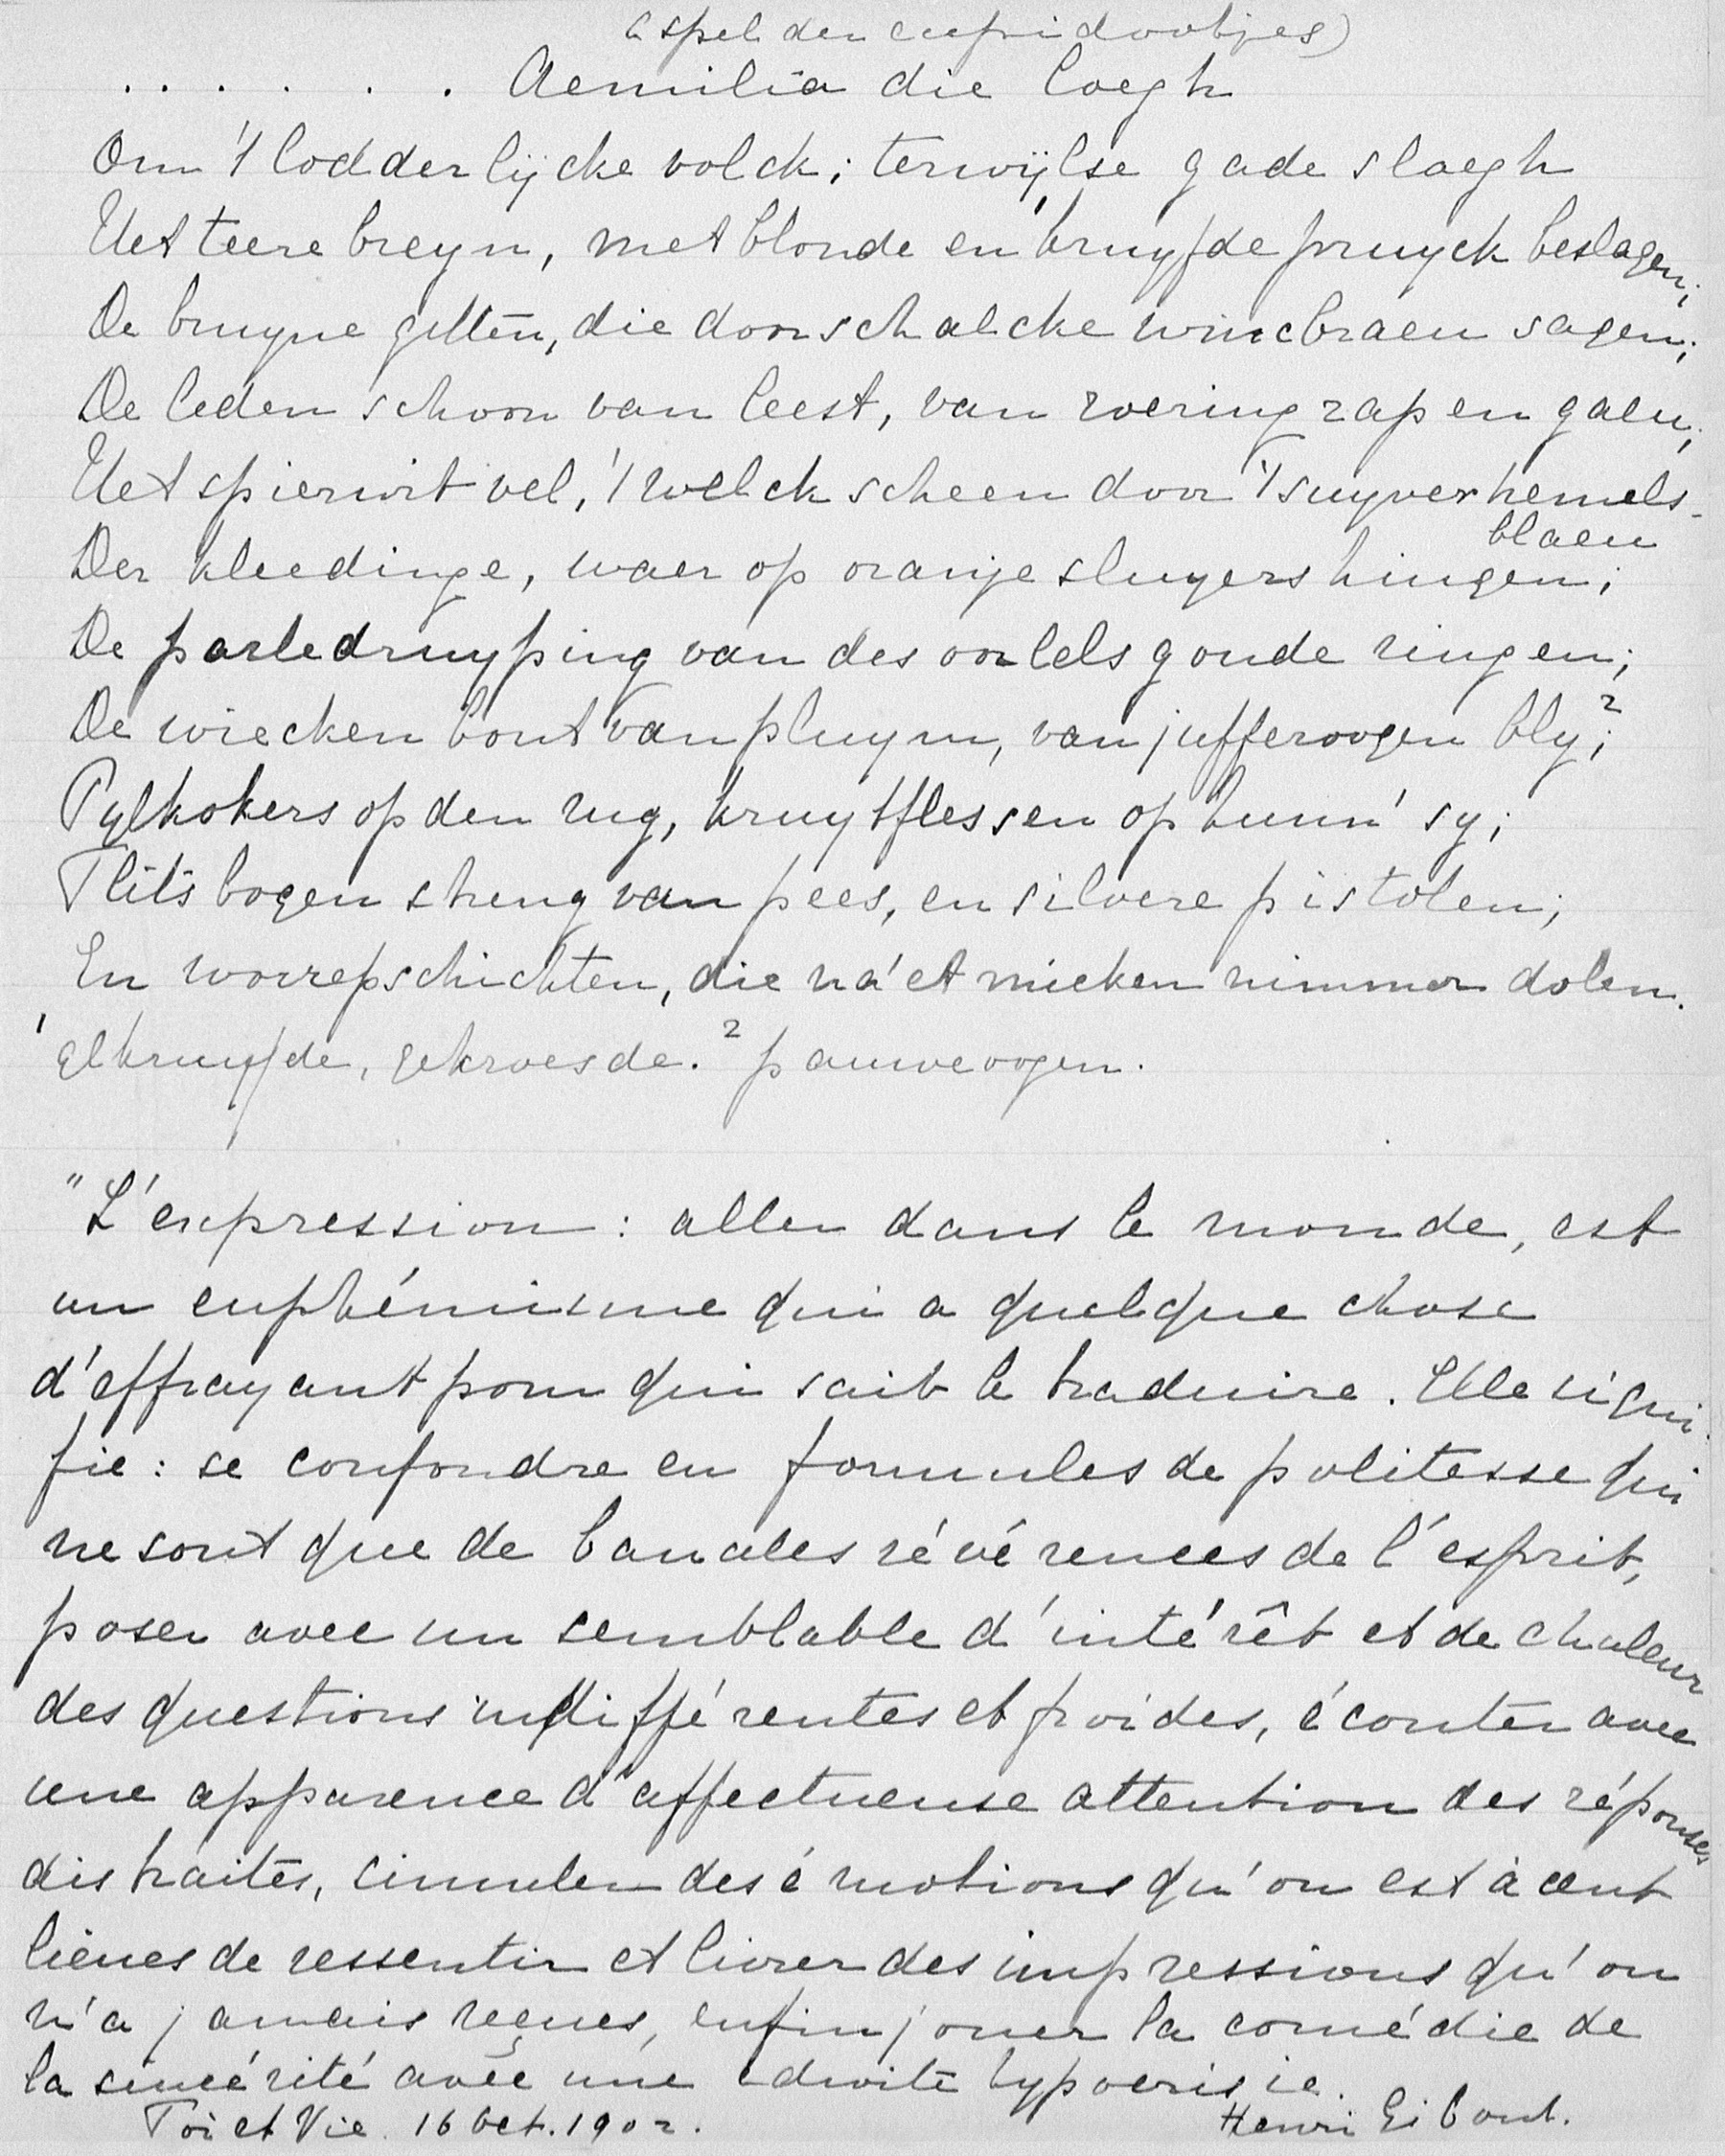 (spel der cupidootjes)
. . . . . . . Aemilia die loegh
Om 't lodderlijcke volck; terwijlse gade sloegh
Het teere breyn, met blonde en 'kruyfde pruyck beslagen;
De bruyne gitten, die door schalcke wincbraeu sagen;
De leden schoon van leest, van roering rap en gaeu;
Het spierwit vel, 't welck scheen door 't suyver hemels-
blaeu
Der kleedinge, waer op oranje sluyers hingen;
De parledruyping van des oorlels goude ringen;
De wiecken bont van pluym, van jufferoogen bly;²
Pylkokers op den rug, kruytflessen op hunn' sy;
Flits bogen streng van pees, en silvere pistolen;
En worrepschichten, die na 'et micken nimmer dolen.
¹ gekruyfde, gekroesde. ² pauweoogen.
"L'expression: aller dans le monde, est
un euphémisme qui a quelque chose
d'effrayant pour qui sait le traduire. Elle signi-
fie: se confondre en formules de politesse qui
ne sont que de banales révérences de l'esprit,
poser avec un semblable d'intérêt et de chaleur
des questions indifférentes et froides, écouter avec
une apparence d'affectueuse attention des réponses
distraites, simuler des émotions qu'on est à cent
lieues de ressentir et livrer des impressions qu'on
n'a jamais reçues, enfin jouer la comédie de
la sincérité avec une adroite hypocrisie.
Foi et Vie. 16 Oct. 1902. Henri